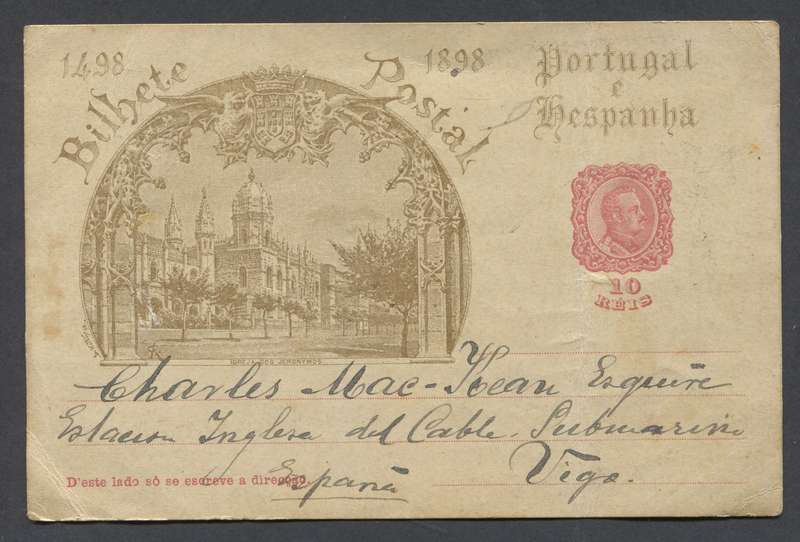 1498
Bilhete Postal
1898
Portugal
e
Hespanha
10
RÉIS
IGREJA DOS JERONYMOS
Charles Mac-Kean Esquire
Estacion Inglesa del Cable Submarino
Vigo.
D'este lado só se escreve a direcção.
España